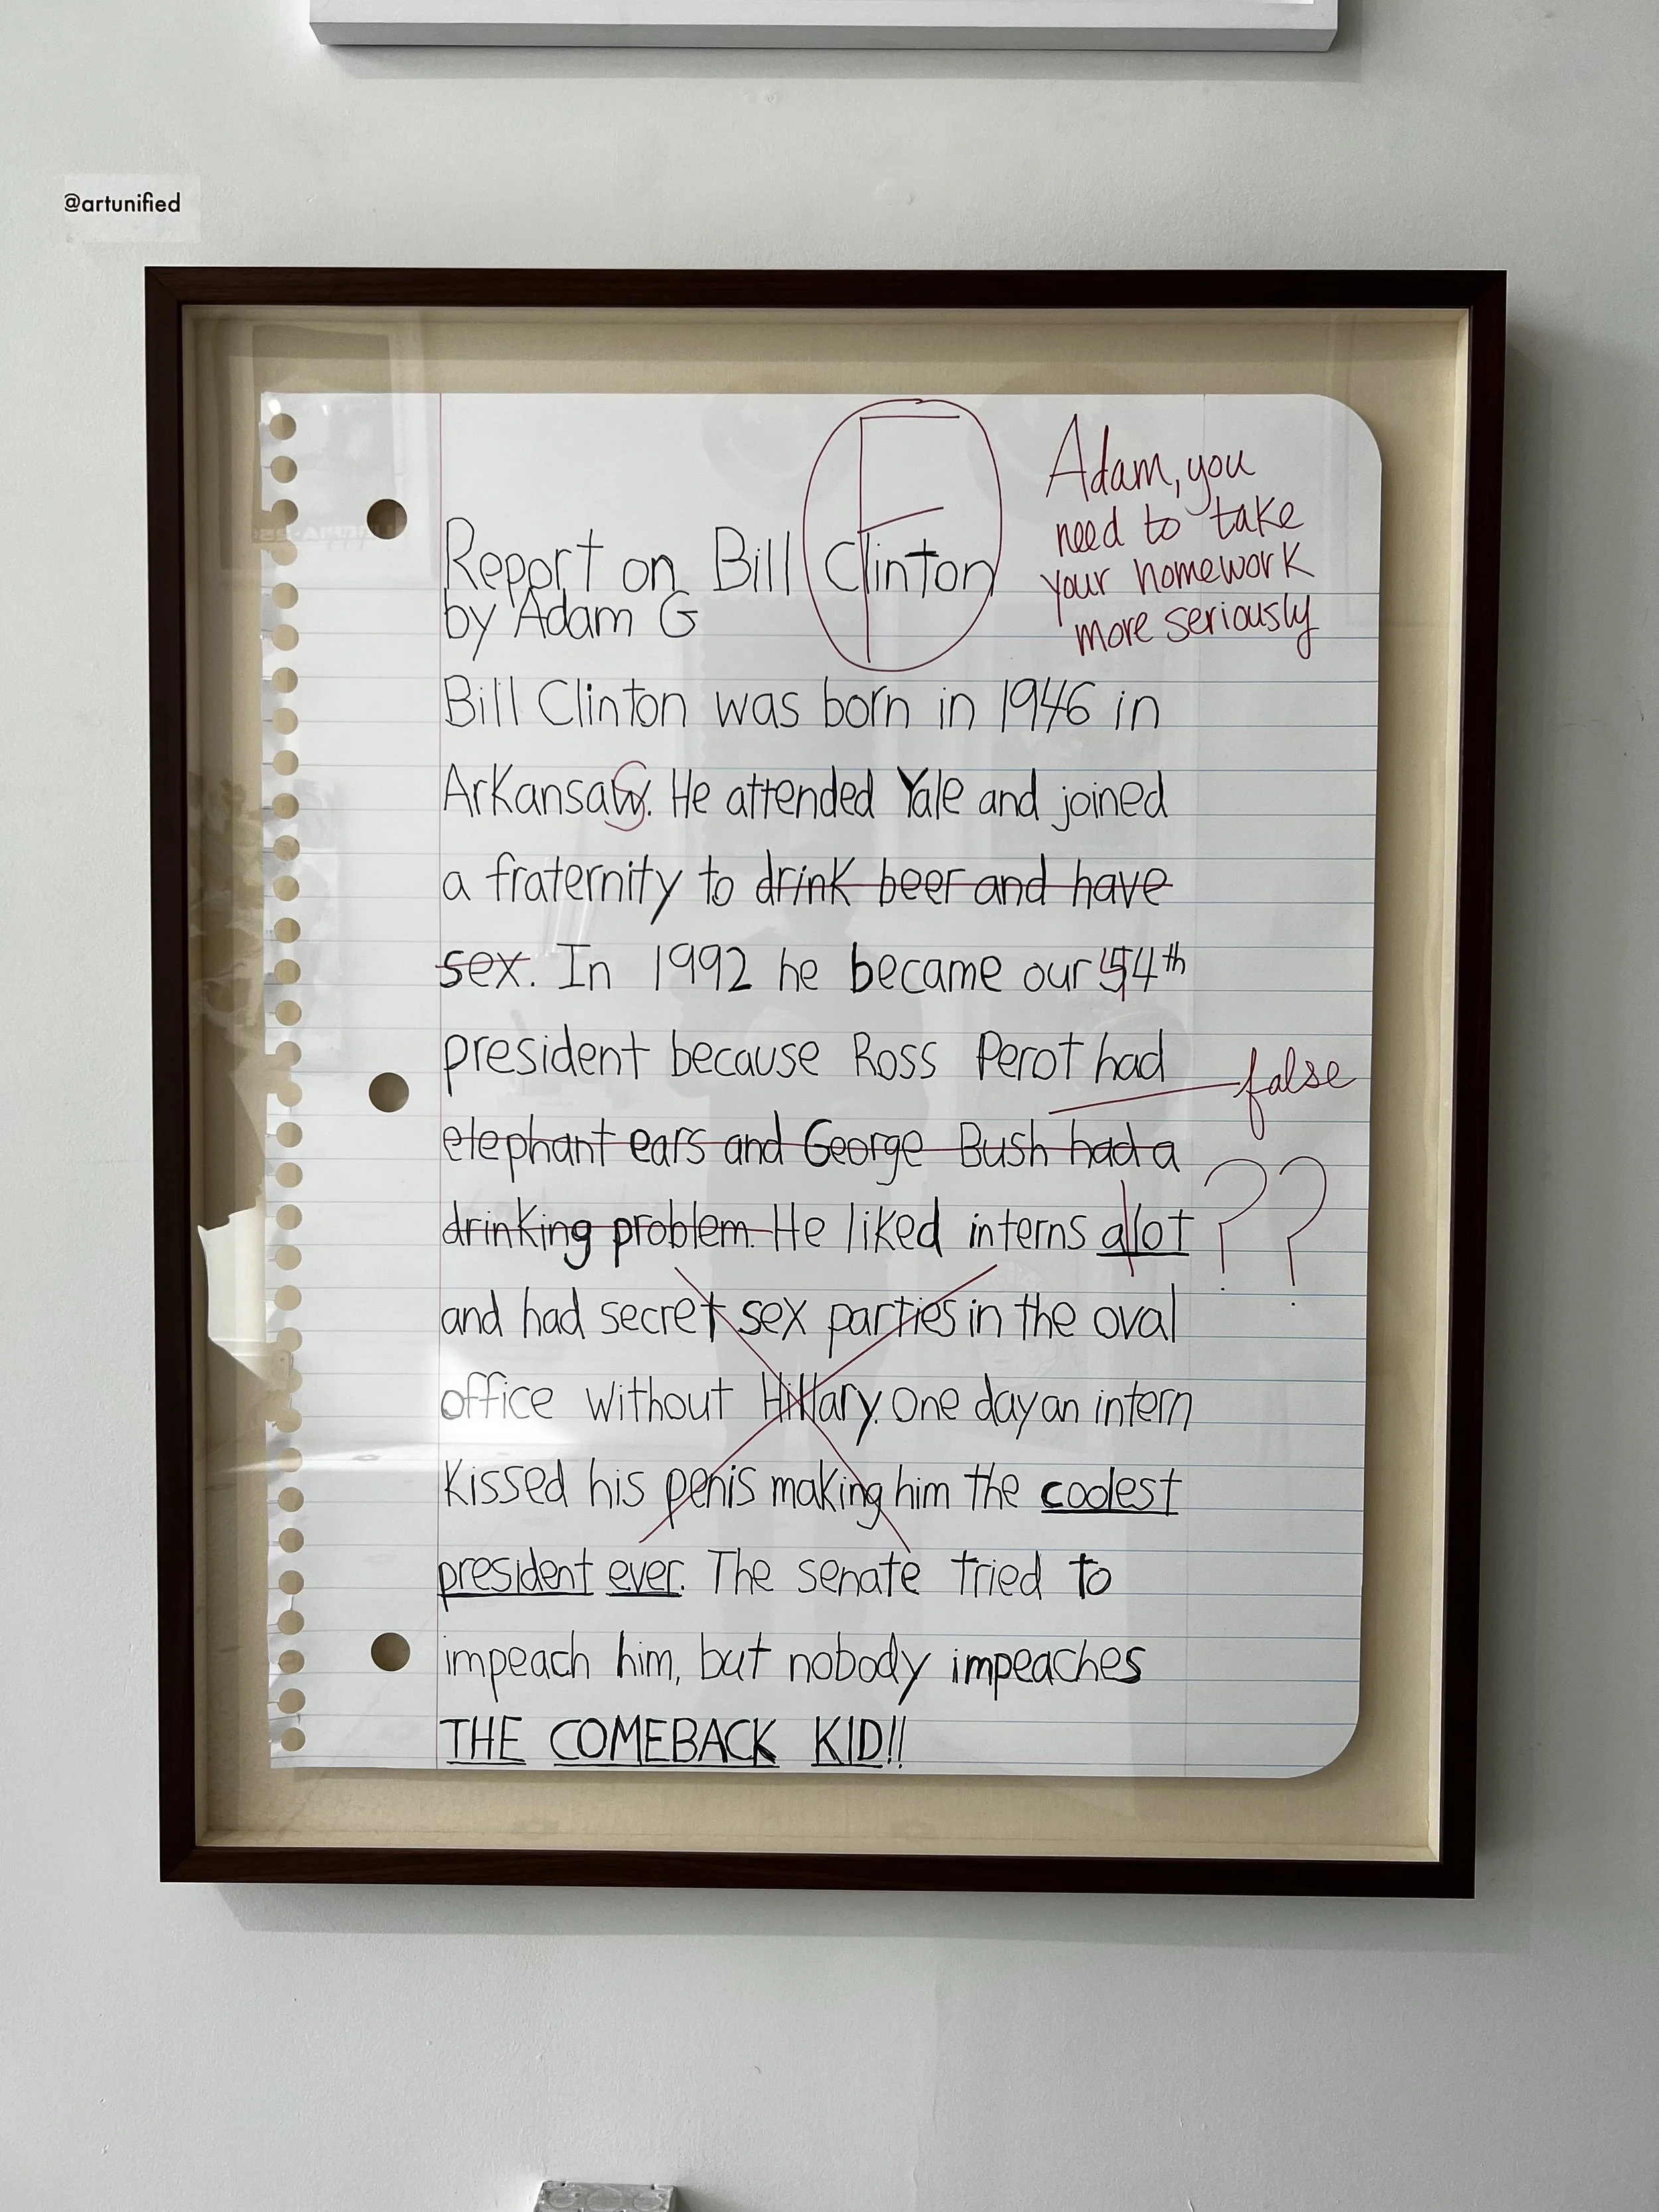 @artunified
F
Adam, you
need to take
your homework
more seriously
Report on Bill Clinton
by Adam G
Bill Clinton was born in 1946 in
Arkansaw. He attended Yale and joined
a fraternity to drink beer and have
sex. In 1992 he became our 54th
president because Ross Perot had
false
elephant ears and George Bush had a
drinking problem. He liked interns alot ??
and had secret sex parties in the oval
office without Hillary. One day an intern
kissed his penis making him the coolest
president ever. The senate tried to
impeach him, but nobody impeaches
THE COMEBACK KID!!